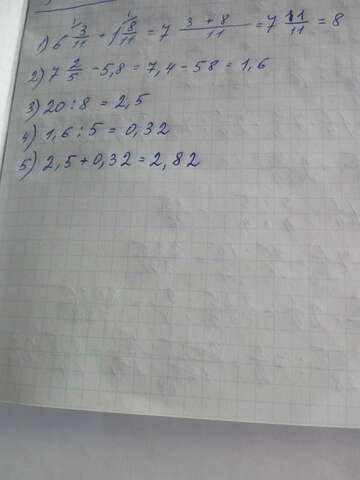 1) 6 3/11 + 1 8/11 = 7 3+8/11 = 7 11/11 = 8
2) 7 2/5 - 5,8 = 7,4 - 58 = 1,6
3) 20 : 8 = 2,5
4) 1,6 : 5 = 0,32
5) 2,5 + 0,32 = 2,82